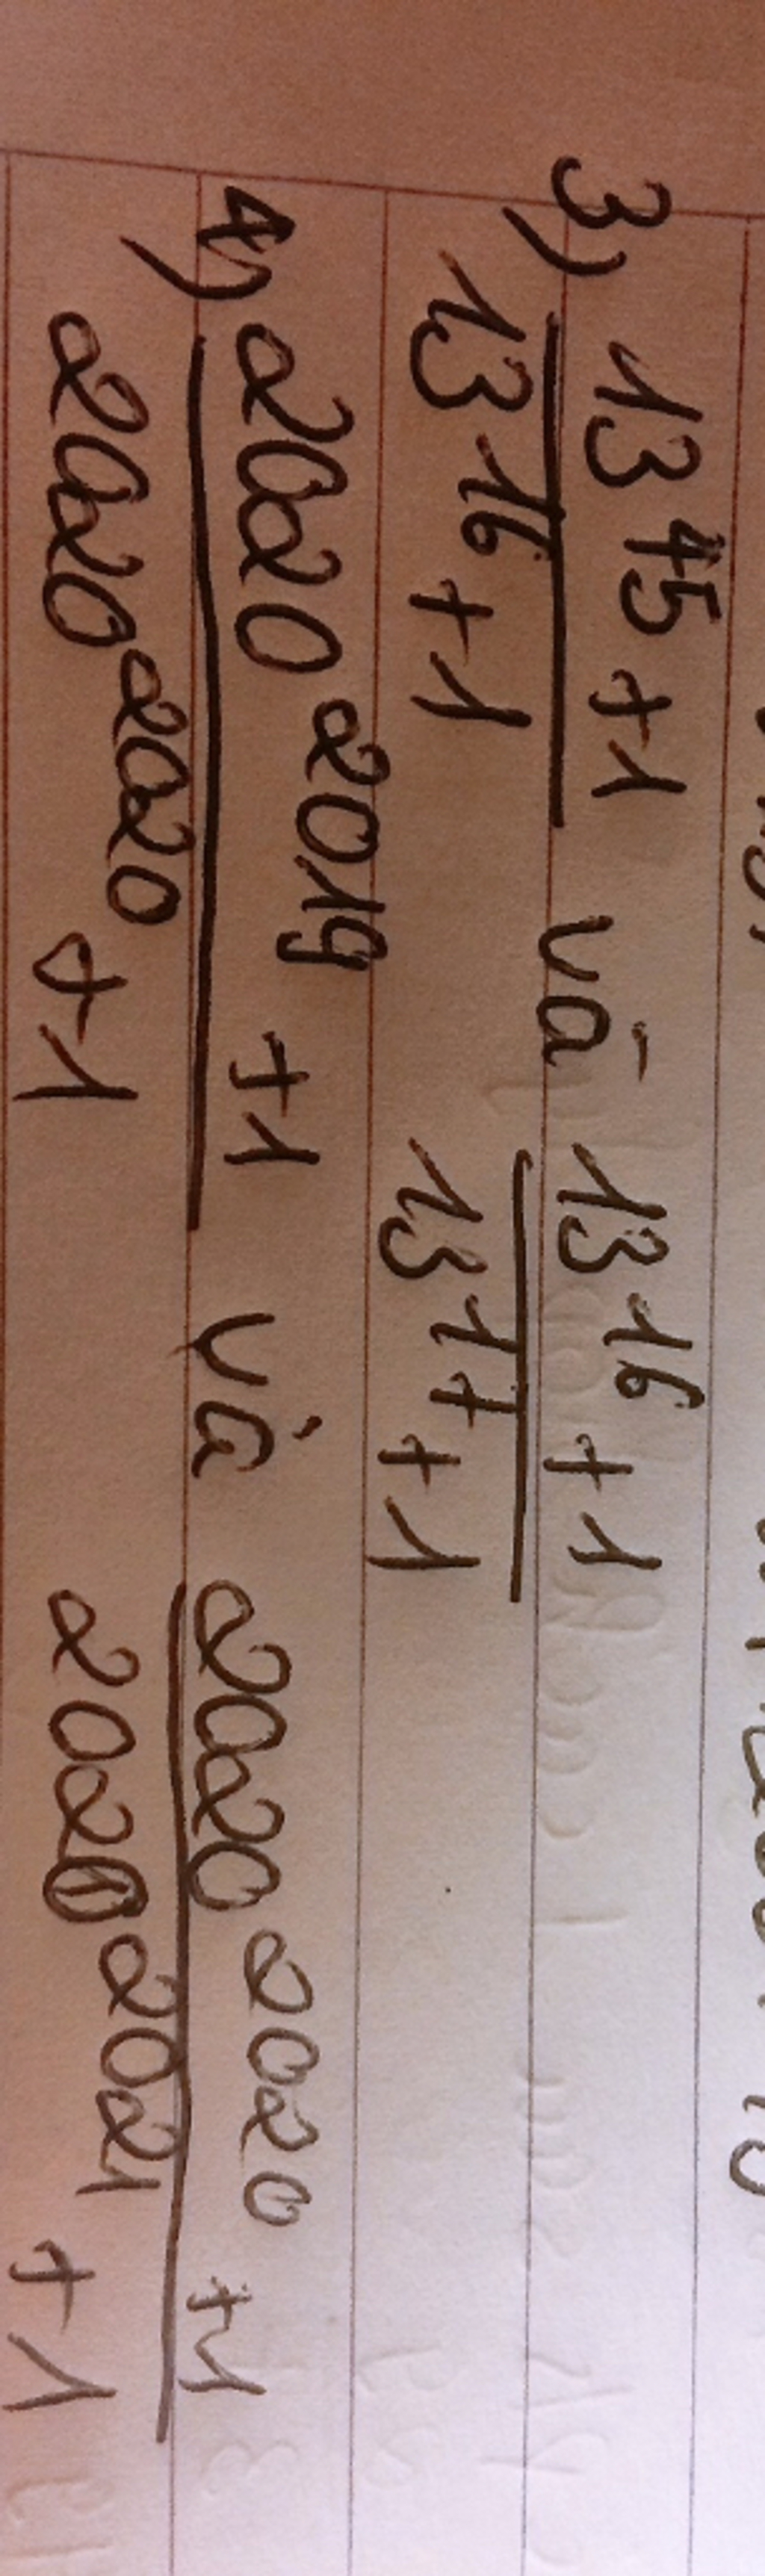 3) 13^15 + 1 và 13^16 + 1
13^16 + 1 13^17 + 1
4) 2020^2019 + 1 và 2020^2020 + 1
2020^2020 + 1 2020^2021 + 1